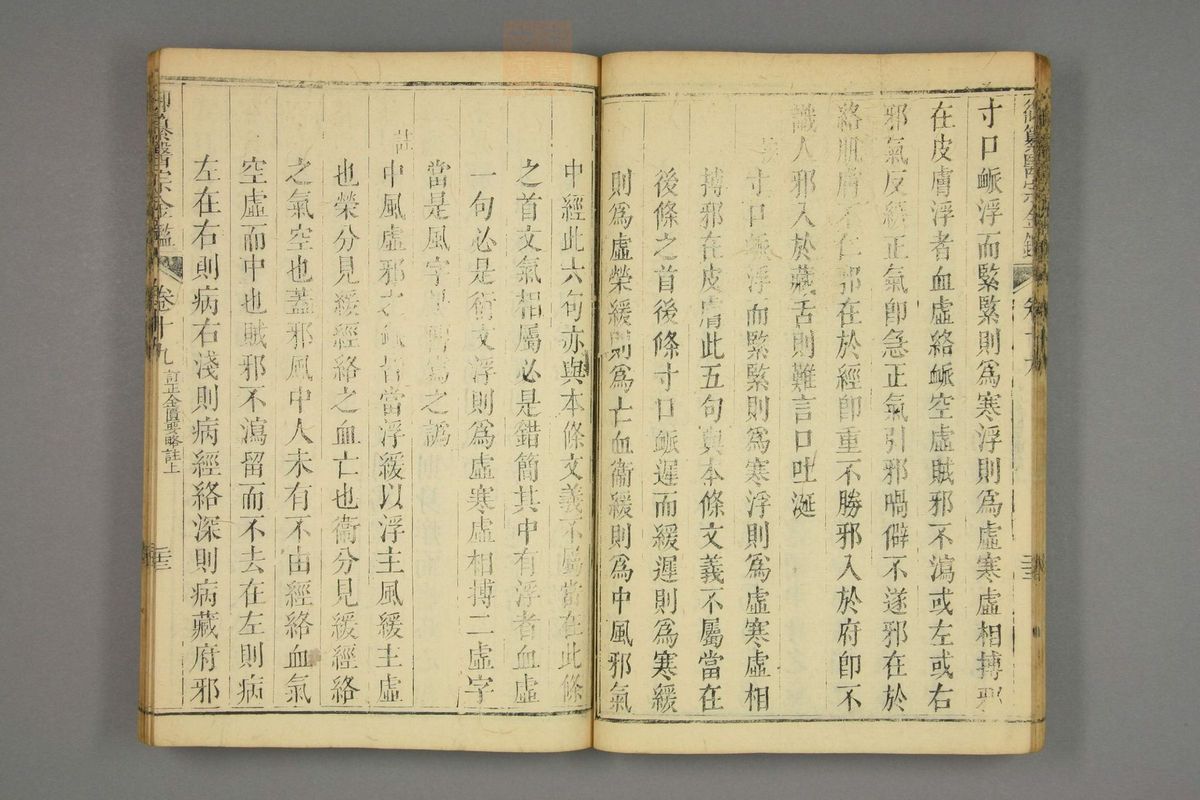 寸口脈浮而緊緊則爲寒浮則爲虛寒虛相搏邪
在皮膚浮者血虛絡脈空虛賊邪不瀉或左或右
邪氣反緩正氣即急正氣引邪喎僻不遂邪在於
絡肌膚不仁邪在於經即重不勝邪入於府即不
識人邪入於藏舌則難言口吐涎
寸口脈浮而緊緊則爲寒浮則爲虛寒虛相
搏邪在皮膚此五句與本條文義不屬當在
後條之首後條寸口脈遲而緩遲則爲寒緩
則爲虛榮緩則爲亡血衞緩則爲中風邪氣
中經此六句亦與本條文義不屬當在此條
之首文氣相屬必是錯簡其中有浮者血虛
一句必是衍文浮則爲虛寒虛相搏二虛字
當是風字是傳寫之譌
註
中風虛邪之脈皆當浮緩以浮主風緩主虛
也榮分見緩經絡之血亡也衞分見緩經絡
之氣空也蓋邪風中人未有不由經絡血氣
空虛而中也賊邪不瀉留而不去在左則病
左在右則病右淺則病經絡深則病藏府邪
御纂醫宗金鑑
卷十九
訂正金匱要略註上